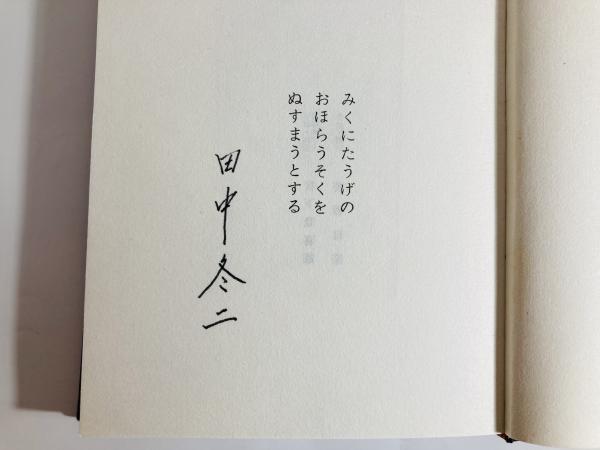 みくにたうげの
おほらうそくを
ぬすまうとする
田中冬二